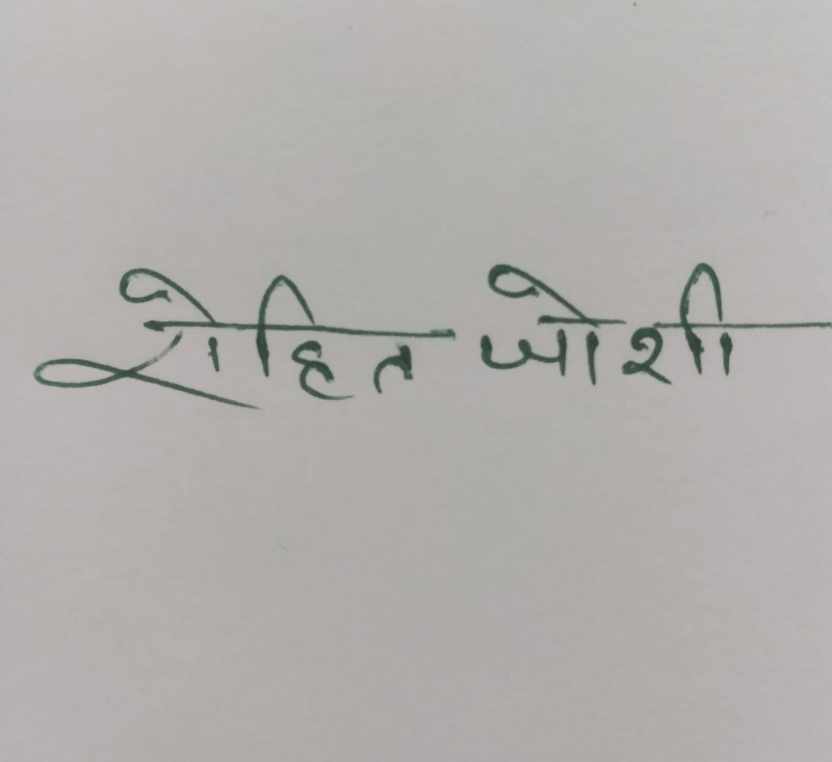 रोहित जोशी